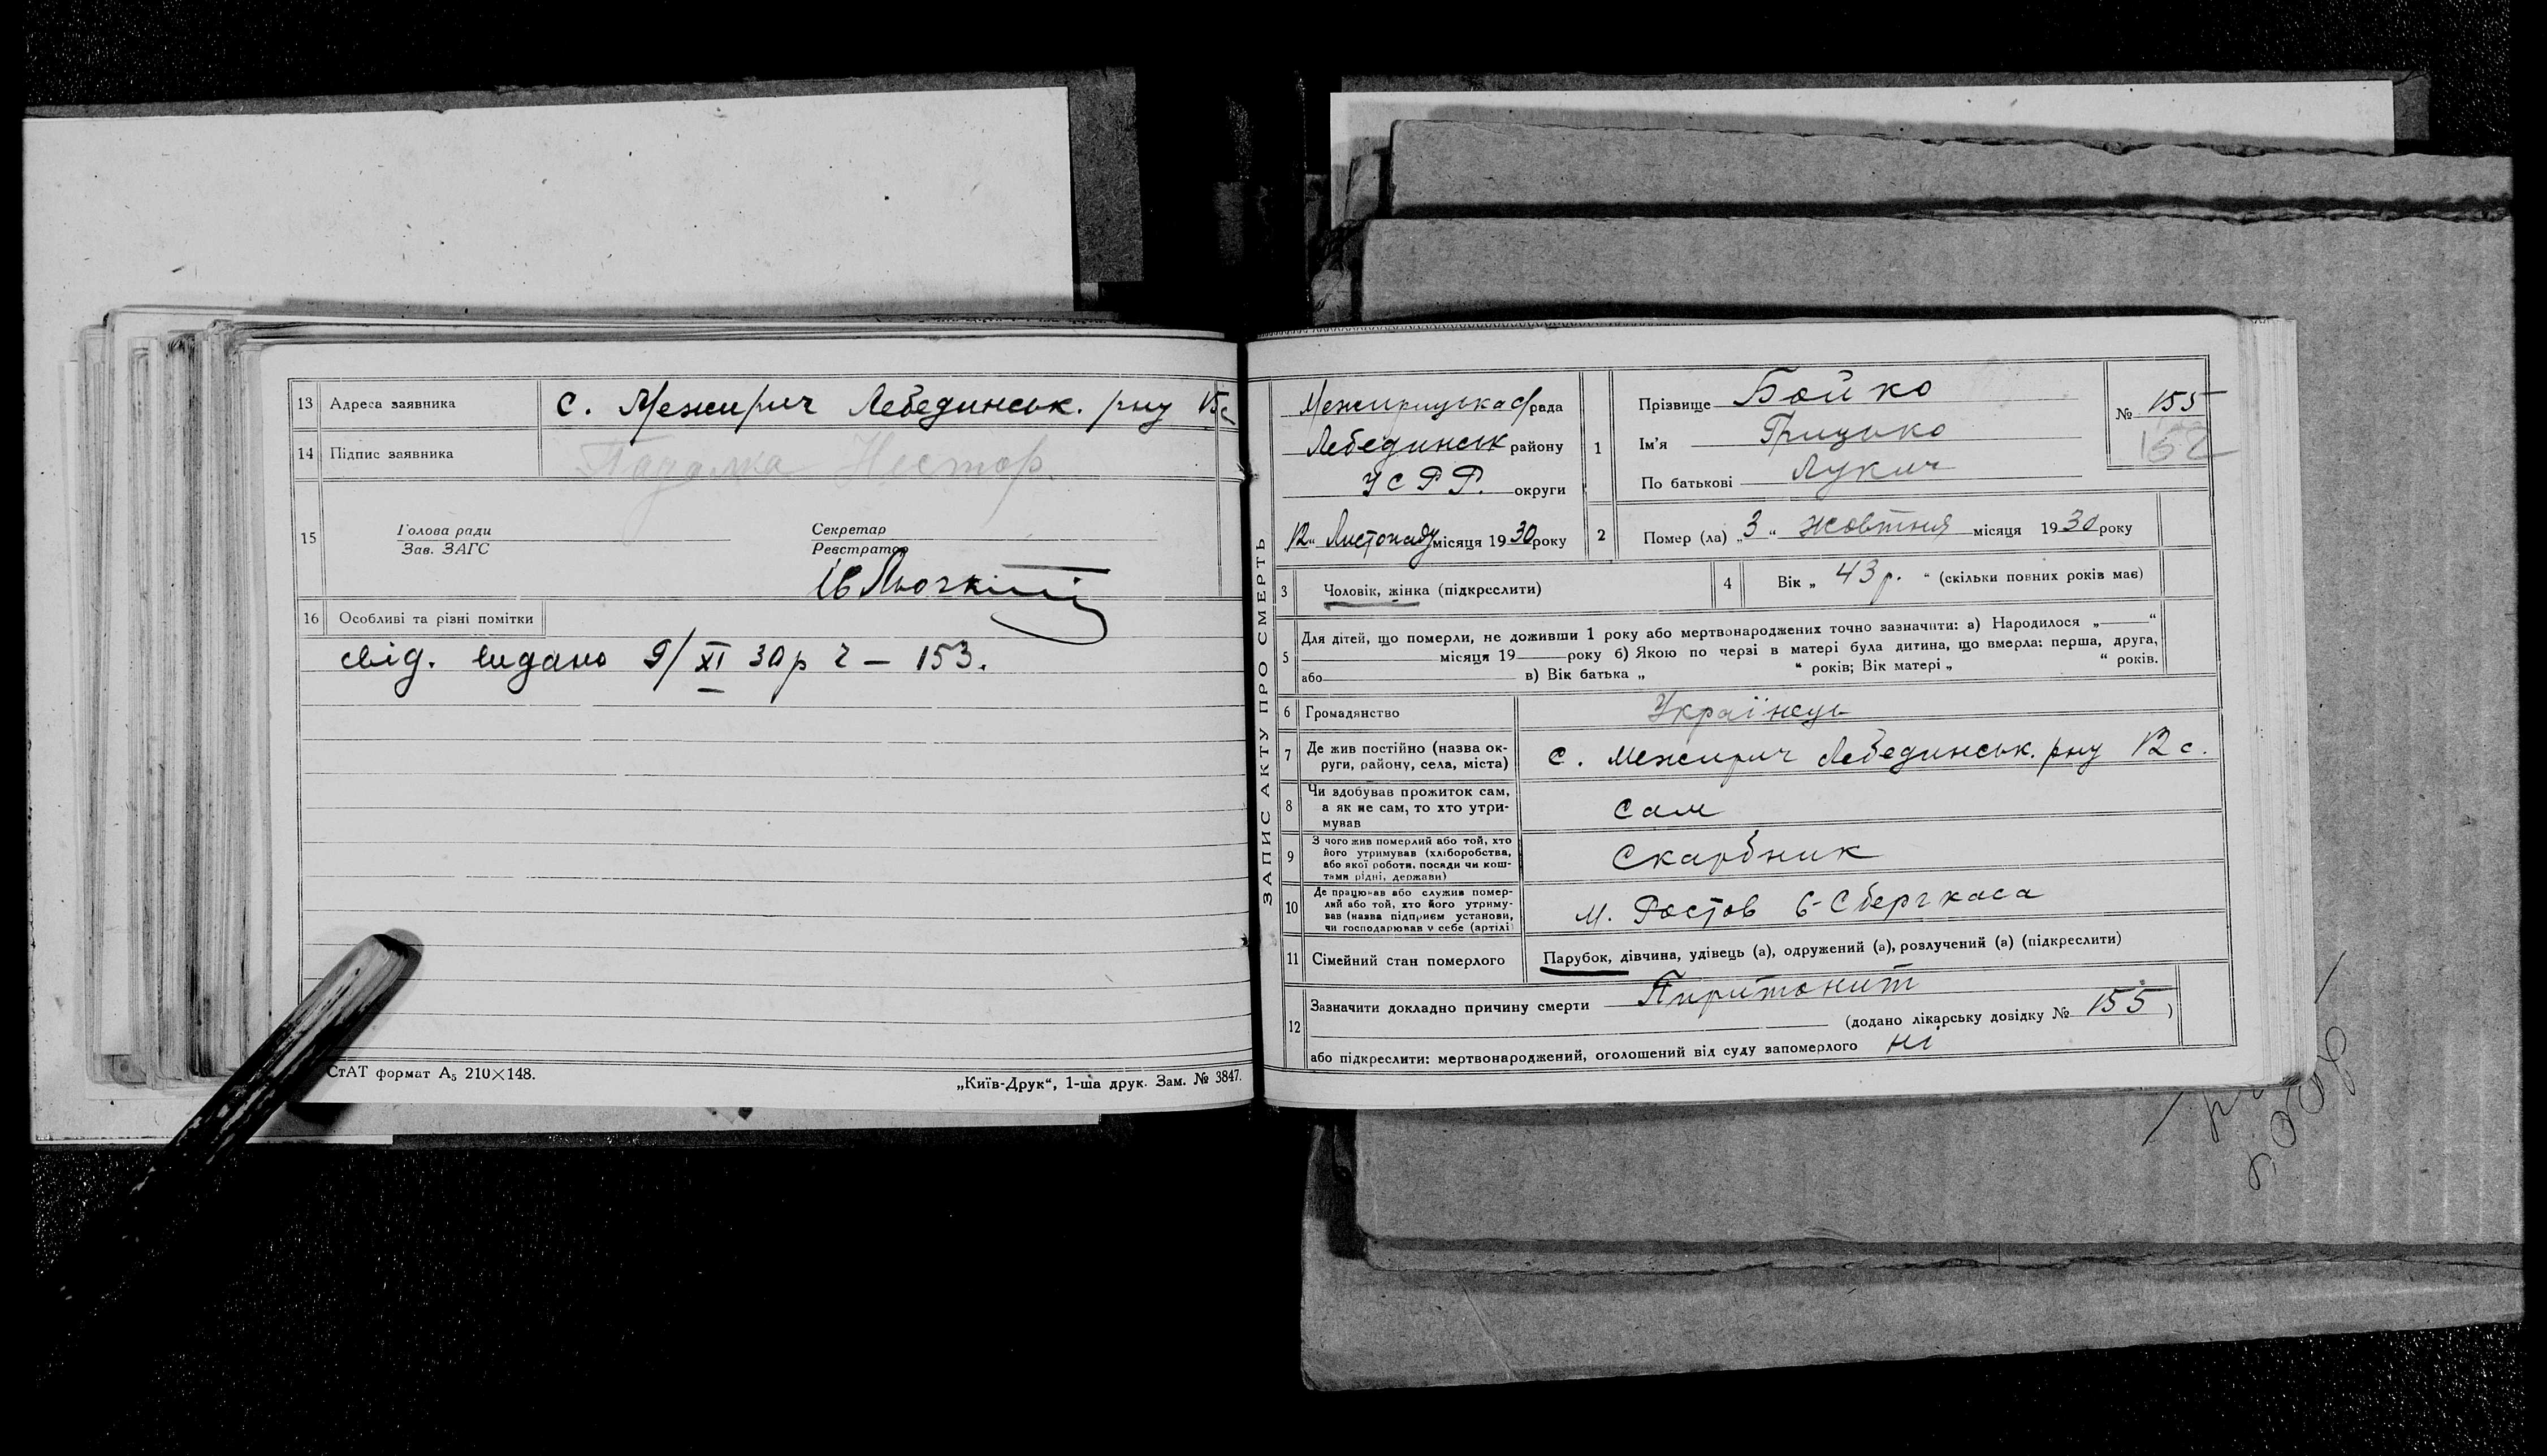 13 Адреса заявника с. Межирич Лебединськ. р-ну
14 Підпис заявника Падалка Нестор.
15 Голова ради
Зав. ЗАГС
Секретар
Реєстратор
16 Особливі та різні помітки
свід. видано 9/XI 30р ч – 153.
СтАТ формат А₅ 210×148.
„Київ-Друк“, 1-ша друк. Зам. № 3847.
ЗАПИС АКТУ ПРО СМЕРТЬ
Межирицька с/рада
Лебединськ району
УСРР. округи
12 „ Листопаду місяця 1930 року
1 Прізвище Бойко
Ім'я Грицько
По батькові Лукич
№ 155
162
2 Помер (ла) „ 3 “ жовтня місяця 1930 року
3 Чоловік, жінка (підкреслити)
4 Вік „ 43 р. “ (скільки повних років має)
5 Для дітей, що померли, не доживши 1 року або мертвонароджених точно зазначити: а) Народилося „ “
місяця 19 року б) Якою по черзі в матері була дитина, що вмерла: перша, друга,
або в) Вік батька „ “ років; Вік матері „ “ років.
6 Громадянство Українець
7 Де жив постійно (назва ок-
руги, району, села, міста) с. Межирич Лебединськ. р-ну
8 Чи здобував прожиток сам,
а як не сам, то хто утри-
мував сам
9 З чого жив померлий або той, хто
його утримував (хліборобства,
або якої роботи, посади чи кош-
тами рідні, держави) Скарбник
10 Де працював або служив помер-
лий або той, хто його утриму-
вав (назва підприєм установи,
чи господарював у себе (артілі м. Ростов 6-Сберг каса
11 Сімейний стан померлого Парубок, дівчина, удівець (а), одружений (а), розлучений (а) (підкреслити)
12 Зазначити докладно причину смерти Пиритонит
(додано лікарську довідку № 155 )
або підкреслити: мертвонароджений, оголошений від суду запомерлого ні